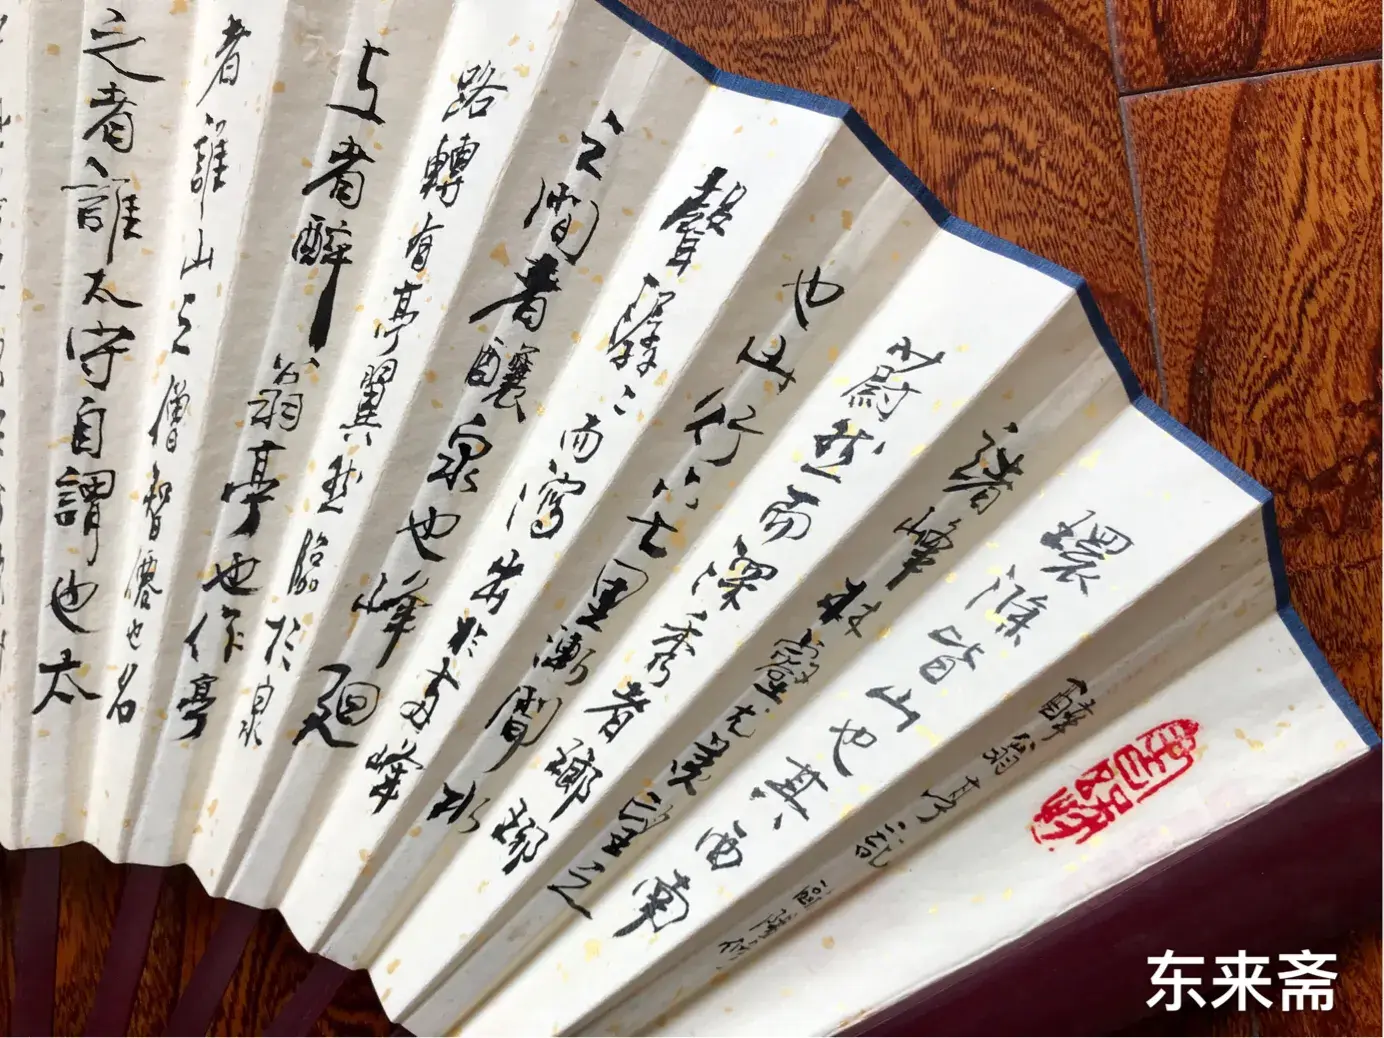 醉翁亭記 歐陽修
環滁皆山也其西南
诸峰林壑尤美望之
蔚然而深秀者瑯琊
也山行六七里漸聞水
聲潺〻而瀉出於两峰
之間者釀泉也峰廻
路轉有亭翼然臨於泉
上者醉翁亭也作亭
者誰山之僧智僊也名
之者誰太守自謂也太
东来斋